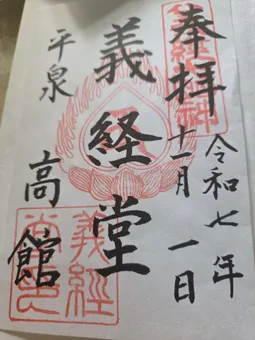 奉拝
令和七年
十一月一日
義経堂
平泉
高館
義経堂印